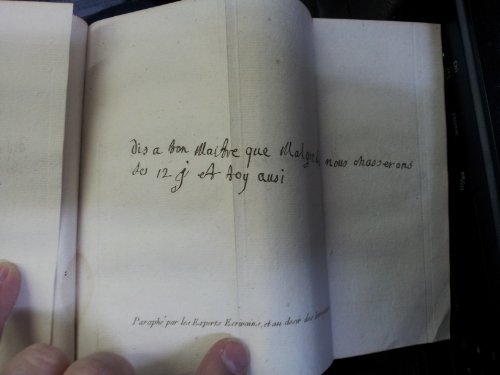 dis a ton Maitre que Malgré nous chasserons
des 12 j et toy ausi
Paraphé par les Experts Ecrivains, et au desir des